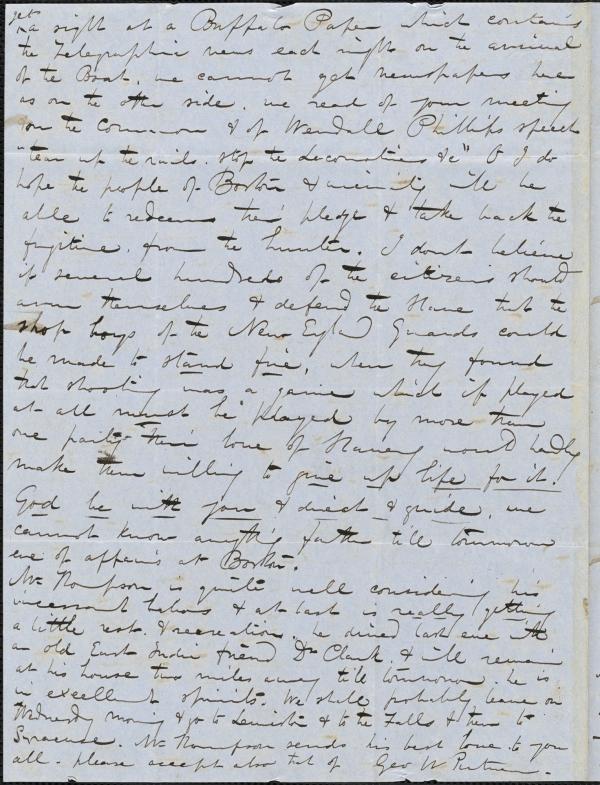 gets
a sight at a Buffalo Paper which contains
the Telegraphic news each night on the arrival
of the Boat. we cannot get newspapers here
as on the other side. we read of your meeting
on the Common & of Wendall Phillips speech
"tear up the rails. stop the Locomotives &c" O I do
hope the people of Boston & vicinity will be
able to redeem their pledge & take back the
fugitive. from the hunter. I dont believe
if several hundreds of the citizens should
arm themselves & defend the slave that the
shop boys of the New Eglad Guards could
be made to stand fire, when they found
that shooting was a game which if played
at all must be played by more than
one party their love of Slavery would hardly
make them willing to give up life for it.
God be with you & direct & guide, we
cannot know anything farther till tomorrow
eve of affairs at Boston.
Mr Thompson is quite well considering his
incessant labors & at last is really getting
a little rest. & recreation. he dined last eve with
an old East India friend Dr Clark. & will remain
at his house two miles away till tomorrow. he is
in excellent spirits. We shall probably leave on
Wednesday morning & go to Lewiston & to the Falls & then to
Syracuse. Mr Thompson sends his best love to you
all. please accept also that of Geo W Putnam.